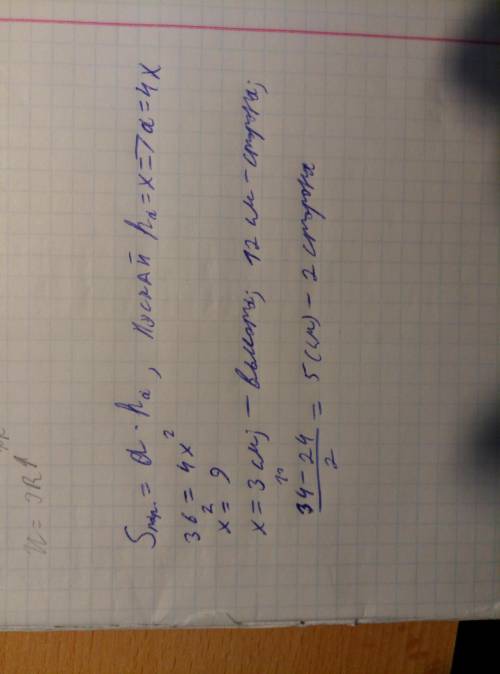 Sпар. = a · ha, пускай ha = x => a = 4x
36 = 4x²
x² = 9
x = 3 см; – высота; 12 см – сторона;
34 – 24 / 2 = 5 (см) – 2 сторона